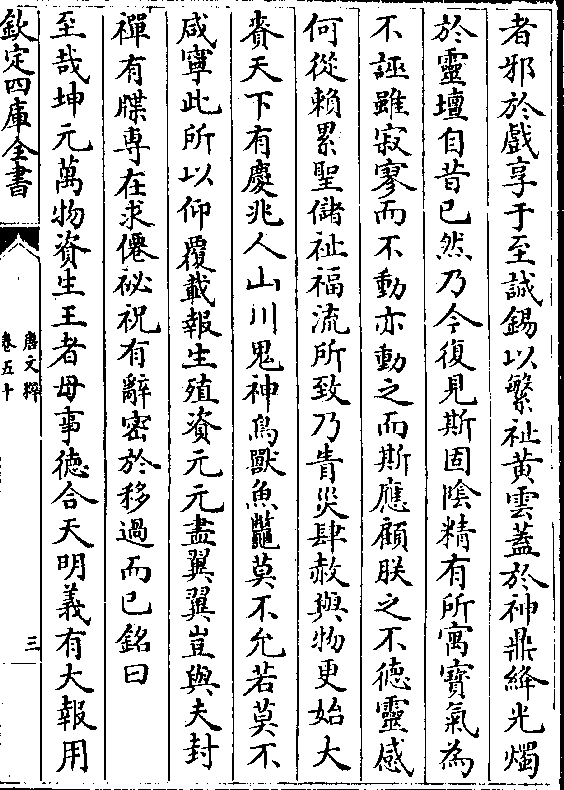 者邪於戲享于至誠錫以繁祉黃雲蓋於神鼎絳光燭
於靈壇自昔已然乃今復見斯固陰精有所寓寶氣為
不誣雖寂寥而不動亦動之而斯應顧朕之不德靈感
何從賴累聖儲祉福流所致乃眚災肆赦與物更始大
賚天下有慶兆人山川鬼神鳥獸魚鼈莫不允若莫不
咸寧此所以仰覆載報生殖資元元盡翼翼豈與夫封
禪有牒専在求僊祕祝有辭密於移過而已銘曰
至哉坤元萬物資生王者母事德合天明義有大報用
欽定四庫全書
唐文粹
卷五十
三